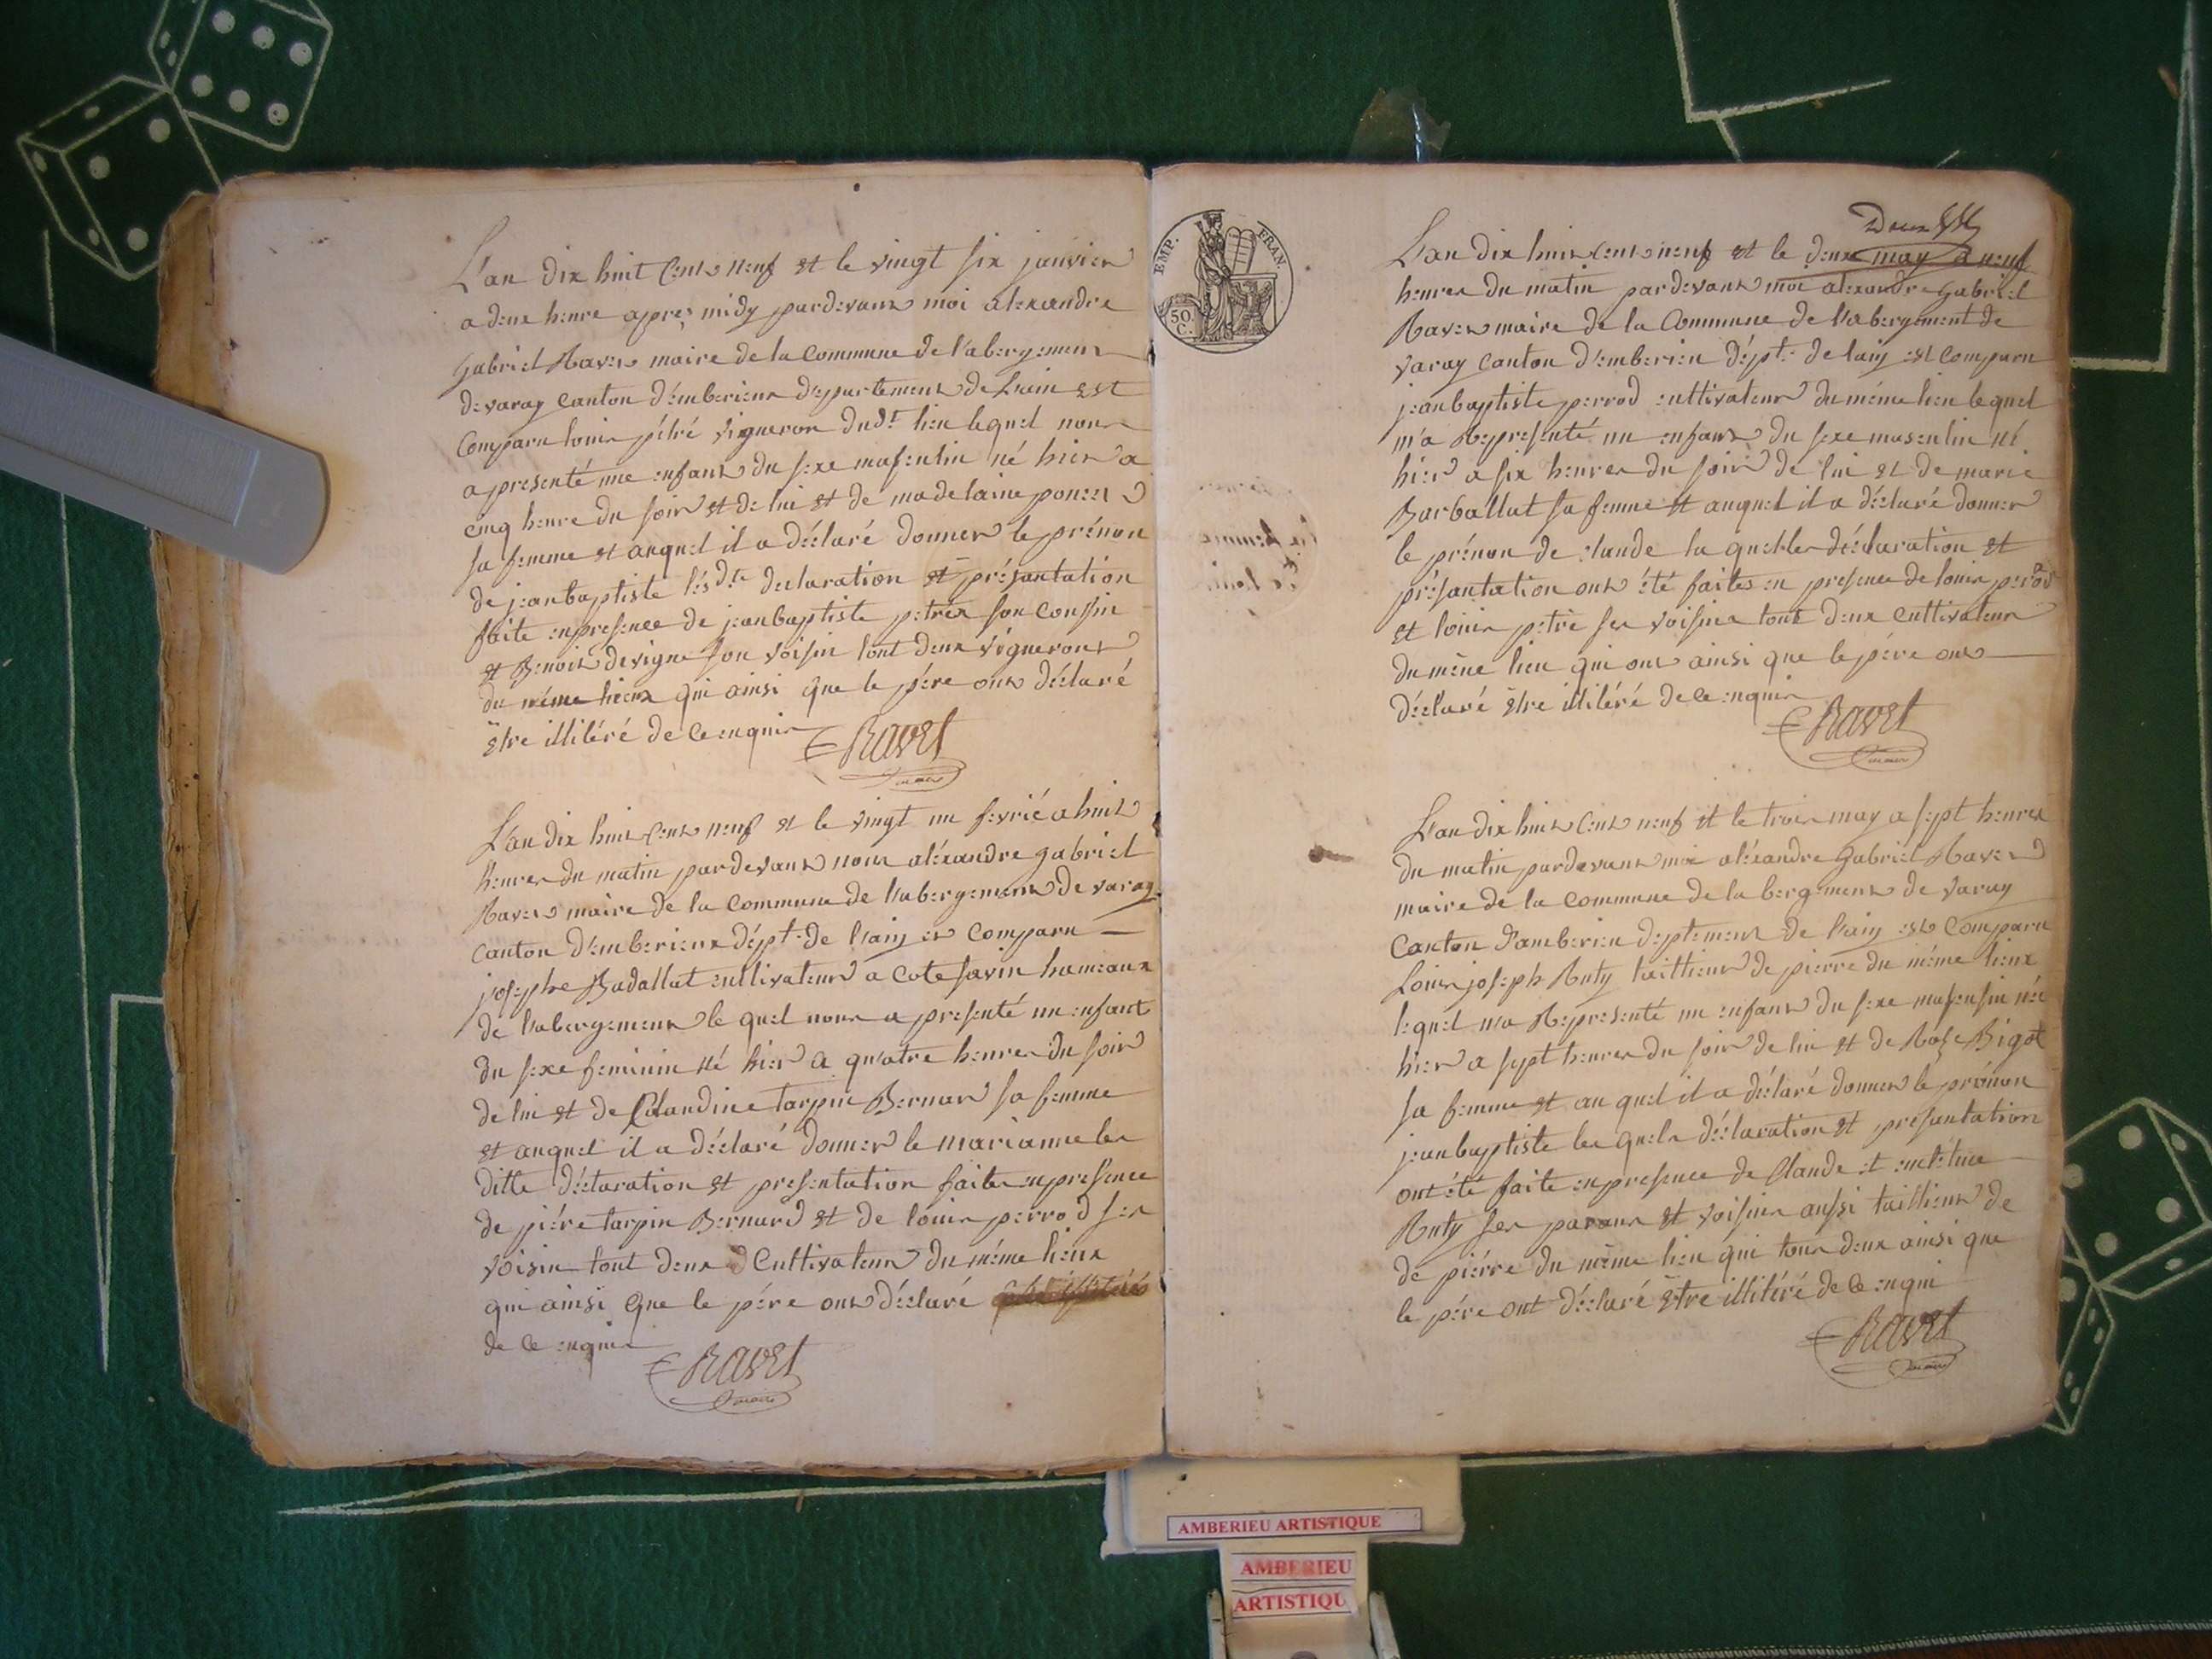 L'an dix huit cent neuf et le vingt six janvier
a deux heure apres midy pardevant moi alexandre
gabriel Ravet maire de la commune de l'abergement
de varay canton d'emberieux departement de l'ain est
comparu louis pétré vigneron dudt lieu lequel nous
a presenté une enfant du sexe masculin né hier a
cinq heure du soir et de lui et de madelaine poncet
sa femme et auquel il a déclaré donner le prénon
de jean baptiste lesdte declaration et présantation
faite en presence de jean baptiste petrés son cousin
et Benoit devigne son voisin tout deux vignerons
du méme lieux qui ainsi que le pére ont déclaré
être illitéré de ce enquis
Ravet
maire
L'an dix huit cent neuf et le vingt un fevrié a huit
heures du matin pardevant nous aléxandre gabriel
Ravet maire de la commune de l'abergement de varay
canton d'emberieux dépt. de l'ain est comparu
josephe Badallut cultivateur a cote savin hameaux
de l'abergement le quel nous a presenté un enfant
du sexe feminin né hier a quatre heures du soir
de lui et de Claudine tarpin Bernar sa femme
et auquel il a déclaré donner le marianne les
ditte déclaration et presentation faites en presence
de piére tarpin Bernard et de louis perrod ses
voisin tout deux cultivateur du méme lieux
qui ainsi que le pére ont déclaré
de ce enquis
Ravet
maire
EMP. FRAN.
50 C.
Deux
L'an dix huit cent neuf et le deux may a neuf
heures du matin pardevant moi alexandre gabriel
Ravet maire de la Commune de l'abergement de
varay canton d'emberieu dépt. de l'ain est comparu
jean baptiste perrod cultivateur du méme lieu lequel
m'a Représenté un enfant du sexe masculin né
hier a six heures du soir de lui et de marie
Barballut sa femme et auquel il a déclaré donner
le prénon de claude la quelles déclaration et
présantation ont été faites en presence de louis perod
et louis petré ses voisins tout deux cultivateur
du même lieu qui ont ainsi que le pére ont
déclaré être illitéré de ce enquis
Ravet
maire
L'an dix huit cent neuf et le trois may a sept heures
du matin pardevant moi aléxandre Gabriel Ravet
maire de la commune de la bergement de varay
Canton d'amberieu deptement de l'ain est comparu
Louis joseph Ruty taillieur de pierre du méme lieux
lequel m'a Représenté un enfant du sexe masculin née
hier a sept heures du soir de lui et de Rose Bigot
sa femme et au quel il a déclaré donner le prénon
jean baptiste les quels déclaration et presantation
ont été faite en presence de Claude et
Ruty ses parans et voisins aussi taillieur de
de piérre du même lieu qui tous deux ainsi que
le pére ont déclaré être illitéré de ce enqui
Ravet
maire
AMBERIEU ARTISTIQUE
AMBERIEU
ARTISTIQU